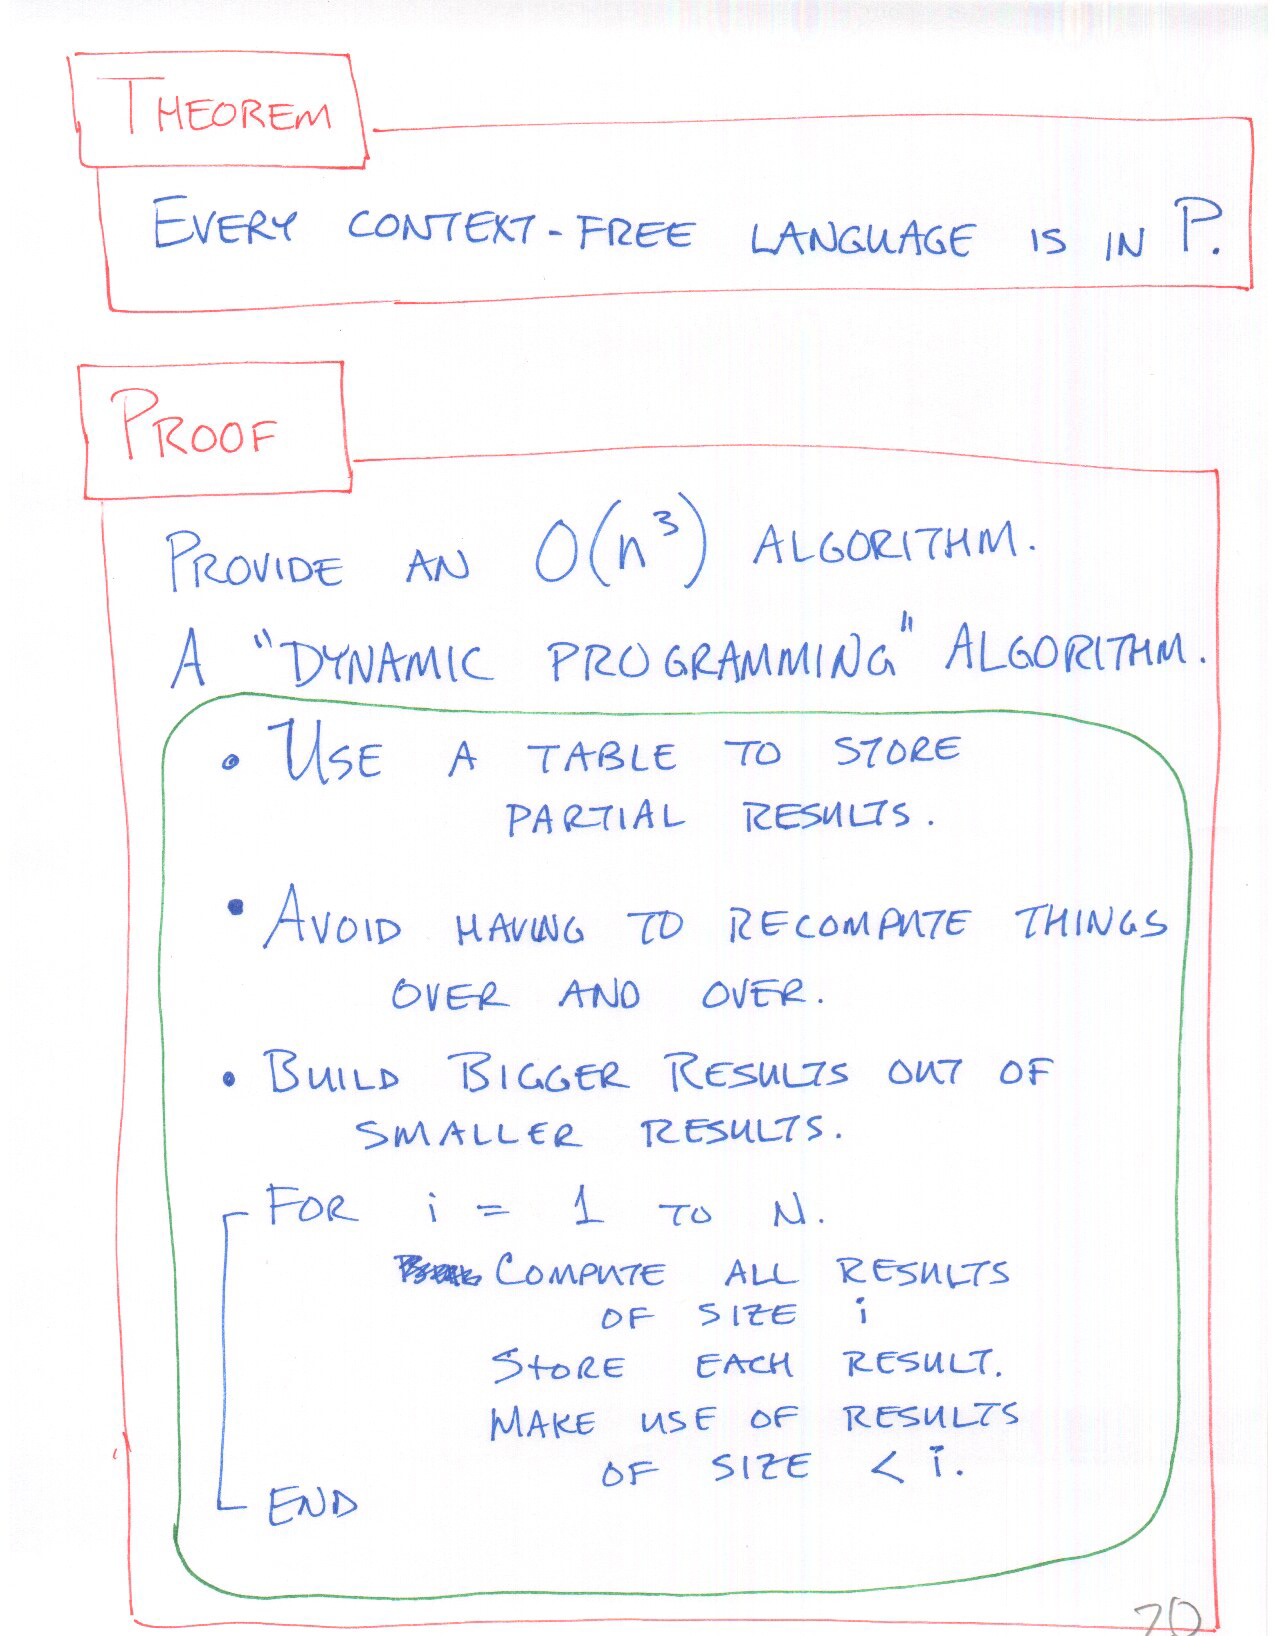 THEOREM
EVERY CONTEXT-FREE LANGUAGE IS IN P.
PROOF
PROVIDE AN O(n³) ALGORITHM.
A "DYNAMIC PROGRAMMING" ALGORITHM.
• USE A TABLE TO STORE
PARTIAL RESULTS.
• AVOID HAVING TO RECOMPUTE THINGS
OVER AND OVER.
• BUILD BIGGER RESULTS OUT OF
SMALLER RESULTS.
FOR i = 1 TO N.
COMPUTE ALL RESULTS
OF SIZE i
STORE EACH RESULT.
MAKE USE OF RESULTS
OF SIZE < i.
END